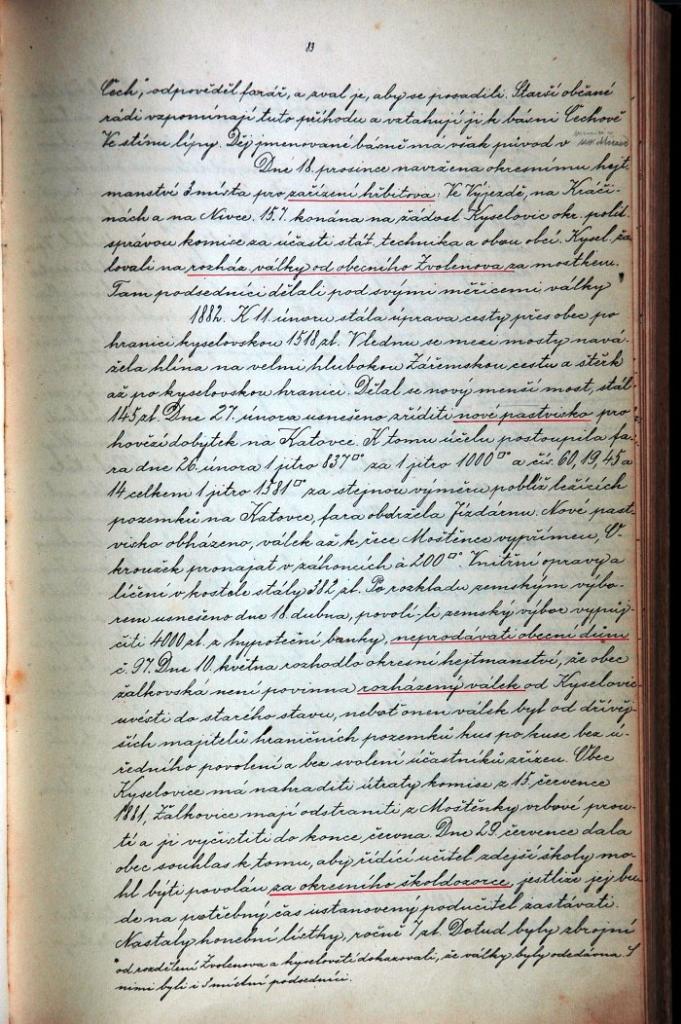 13
Čech", odpověděl farář, a zval je, aby se posadili. Starší občané
rádi vzpomínají tuto příhodu a vztahují ji k básni Čechově
Ve stínu lípy. Děj jmenované básně má však původ v
Dne 18. prosince navržena okresnímu hejt-
manství 3 místa pro zařízení hřbitova: Ve Výjezdě, na Kráči-
nách a na Nivce. 15.7. konána na žádost Kyselovic okr. polit.
správou komise za účasti stát. technika a obou obcí. Kysel. ža-
lovali na rozház. války od obecního Zvolenova za mostkem.
Tam podsedníci dělali pod svými měřicemi války *
1882. K 11. únoru stála úprava cesty přes obec po
hranici kyselovskou 1518 zl. V lednu se mezi mosty navá-
žela hlína na velmi hlubokou Zářemskou cestu a štěrk
až po kyselovskou hranici. Dělal se nový menší most, stál
145 zl. Dne 27. února usneseno zříditi nové pastvisko pro
hovězí dobytek na Katovce. K tomu účelu postoupila fa-
ra dne 26. února 1 jitro 837□° za 1 jitro 1000□° a čís. 60, 19, 45 a
14 celkem 1 jitro 1581□° za stejnou výměru poblíž ležících
pozemků na Katovce, fara obdržela Jízdárnu. Nové past-
visko obházeno, válek až k řece Moštěnce vypřímen, O-
kroužek pronajat v záhoncích à 200□°. Vnitřní opravy a
líčení v kostele stály 382 zl. Po rozkladu zemským výbo-
rem usneseno dne 18. dubna, povolí-li zemský výbor vypůj-
čiti 4000 zl. z hypoteční banky, neprodávati obecní dům
č. 97. Dne 10. května rozhodlo okresní hejtmanství, že obec
žalkovská není povinna rozházený válek od Kyselovic
uvésti do starého stavu, neboť onen válek byl od dřívěj-
ších majitelů hraničních pozemků kus po kuse bez ú-
ředního povolení a bez svolení účastníků zřízen. Obec
Kyselovice má nahraditi útraty komise z 15. července
1881, Žalkovice mají odstraniti z Moštěnky vrbové prou-
tí a ji vyčistiti do konce června. Dne 29. července dala
obec souhlas k tomu, aby řídící učitel zdejší školy mo-
hl býti povolán za okresního školdozorce, jestliže jej bu-
de na potřebný čas ustanovený podučitel zastávati.
Nastaly honební lístky, ročně 1 zl. Dotud byly zbrojní
* od rozdělení Zvolenova a kyselovští dokazovali, že války byly odedávna. S
nimi byli i 3 místní podsedníci.